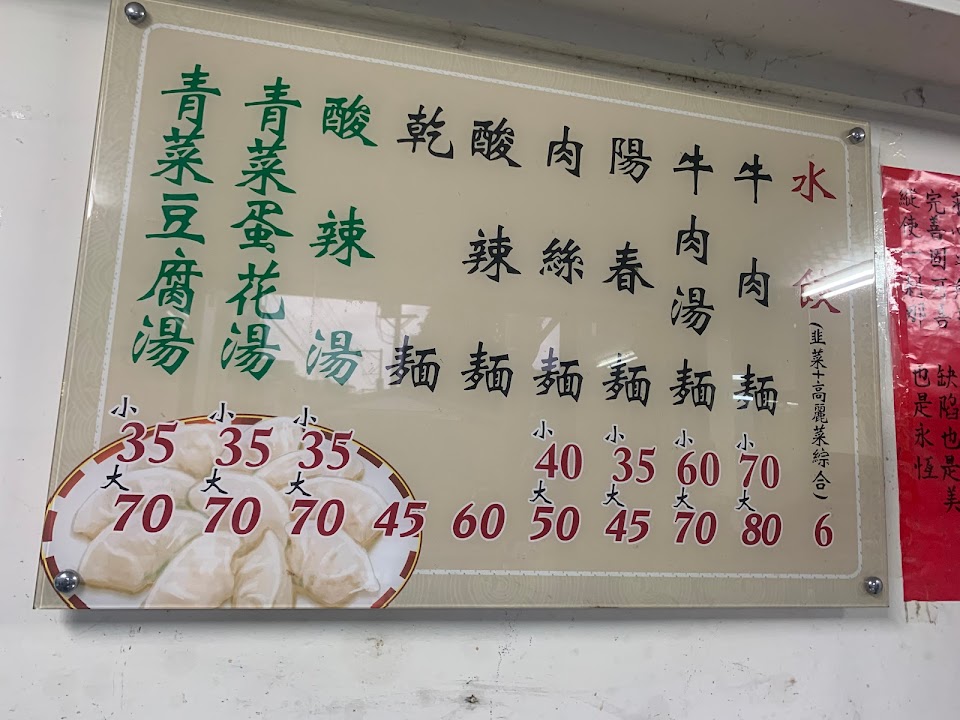 完善固可喜 缺陷也是美
縱使一剎那 也是永恆
水餃(韭菜+高麗菜綜合) 6
牛肉麵 小70 大80
牛肉湯麵 小60 大70
陽春麵 小35 大45
肉絲麵 小40 大50
酸辣麵 60
乾麵 45
酸辣湯 小35 大70
青菜蛋花湯 小35 大70
青菜豆腐湯 小35 大70